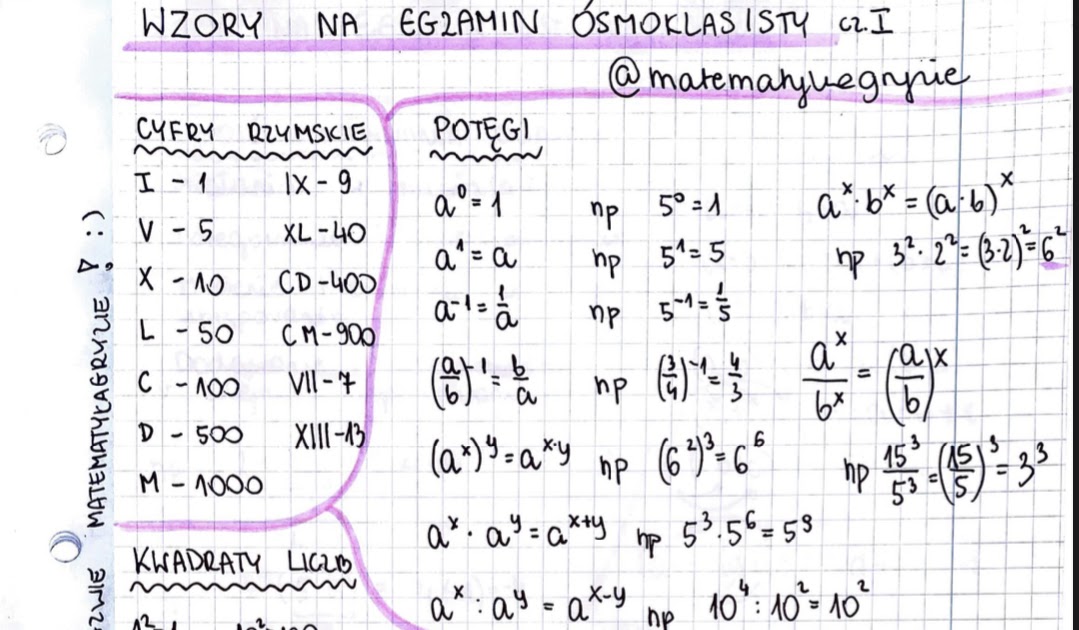 WZORY NA EGZAMIN ÓSMOKLASISTY cz.I
@matematykegryzie
CYFRY RZYMSKIE
I - 1 IX - 9
V - 5 XL - 40
X - 10 CD - 400
L - 50 CM - 900
C - 100 VII - 7
D - 500 XIII - 13
M - 1000
KWADRATY LICZB
POTĘGI
a⁰ = 1 np 5⁰ = 1
a¹ = a np 5¹ = 5
a⁻¹ = 1/a np 5⁻¹ = 1/5
(a/b)⁻¹ = b/a np (3/4)⁻¹ = 4/3
(aˣ)ʸ = aˣ·ʸ np (6²)³ = 6⁶
aˣ · aʸ = aˣ⁺ʸ np 5³ · 5⁶ = 5⁹
aˣ : aʸ = aˣ⁻ʸ np 10⁴ : 10² = 10²
aˣ · bˣ = (a · b)ˣ
np 3² · 2² = (3·2)² = 6²
aˣ/bˣ = (a/b)ˣ
np 15³/5³ = (15/5)³ = 3³
MATEMATYKAGRYZIE :)